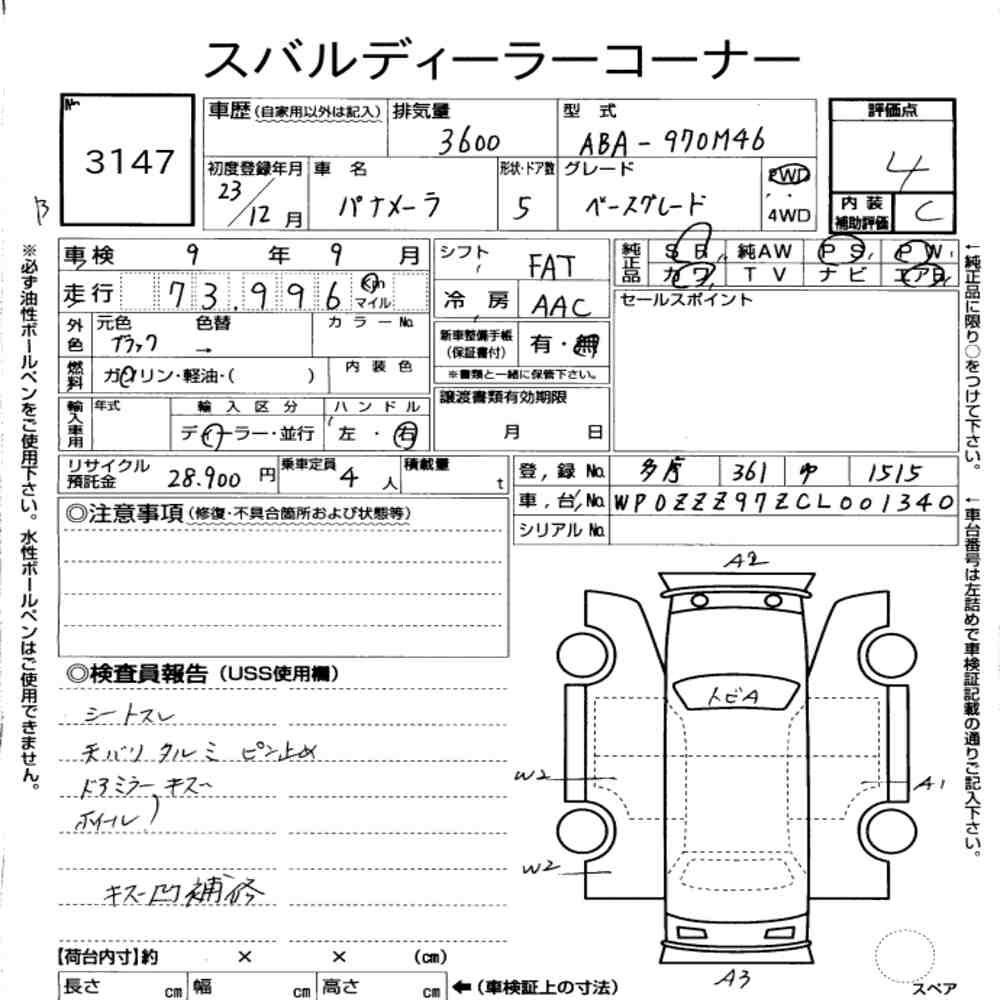 スバルディーラーコーナー
No.
3147
車歴(自家用以外は記入)
排気量
3600
型 式
ABA-970M46
評価点
4
内装補助評価
C
初度登録年月
23/12月
車 名
パナメーラ
形状・ドア数
5
グレード
ベースグレード
2WD
・
4WD
B
車検 9 年 9 月
走行 73.996 Km マイル
外色 元色 ブラック 色替 → カラーNo.
燃料 ガソリン・軽油・( ) 内装色
輸入車用 年式 輸入区分 ディーラー・並行 ハンドル 左・右
シフト FAT
冷房 AAC
新車整備手帳(保証書付) 有・無
※書類と一緒に保管下さい。
譲渡書類有効期限
月 日
純正品 SR 純AW PS PW
カワ TV ナビ エアB
セールスポイント
リサイクル預託金 28.900 円 乗車定員 4 人 積載量 t
登録No. 多摩 361 ゆ 1515
車台No. WP0ZZZ97ZCL001340
シリアルNo.
◎注意事項(修復・不具合箇所および状態等)
◎検査員報告(USS使用欄)
シートスレ
天バリ タルミ ピン止め
ドアミラー キズ
ホイール
キズ凹補修
A2
トビA
W2
A1
W2
A3
スペア
【荷台内寸】約 × × (cm)
長さ cm 幅 cm 高さ cm ←(車検証上の寸法)
※必ず油性ボールペンをご使用下さい。水性ボールペンはご使用できません。
←純正品に限り○をつけて下さい。
←車台番号は左詰めで車検証記載の通りご記入下さい。